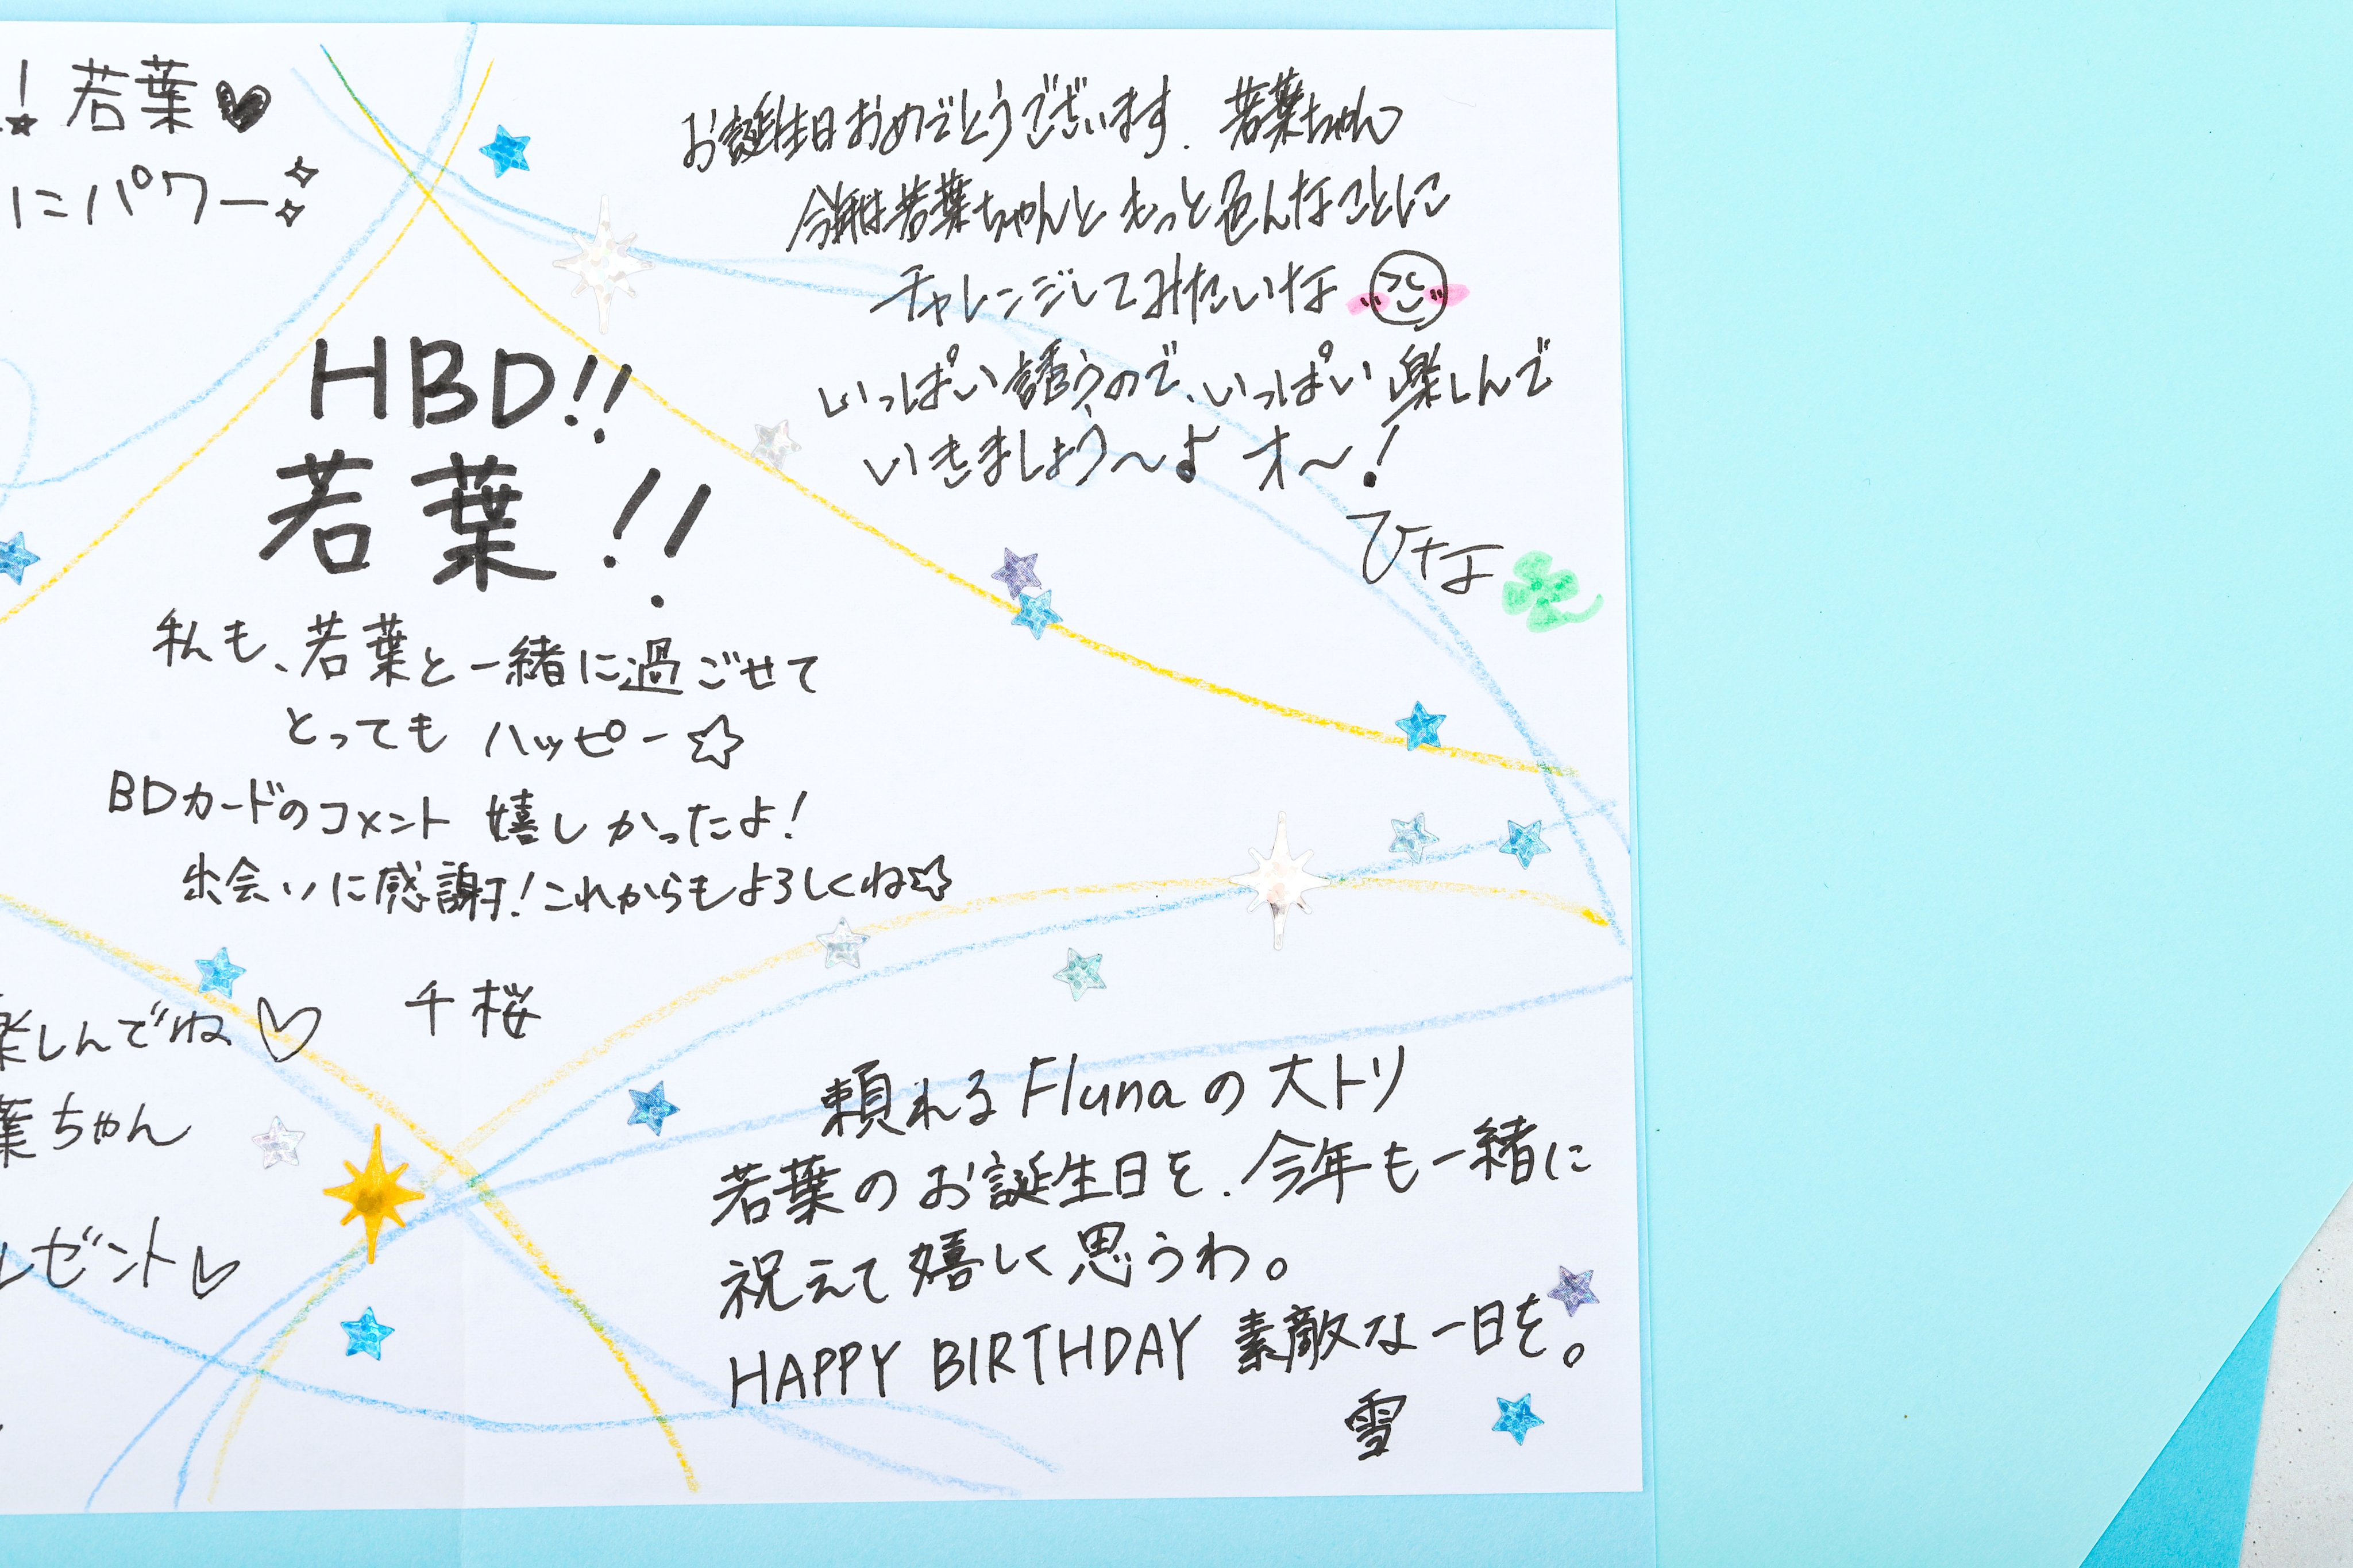 ！若葉
にパワー
お誕生日おめでとうございます. 若葉ちゃん
今年は若葉ちゃんともっと色んなことに
チャレンジしてみたいな
いっぱい誘うので、いっぱい楽しんで
いきましょう〜よ オ〜！
ひな
HBD!!
若葉!!
私も、若葉と一緒に過ごせて
とってもハッピー☆
BDカードのコメント 嬉しかったよ！
出会いに感謝！これからもよろしくね☆
千桜
楽しんでね♡
葉ちゃん
レゼント♡
頼れるFlunaの大トリ
若葉のお誕生日を、今年も一緒に
祝えて嬉しく思うわ。
HAPPY BIRTHDAY 素敵な一日を。
雪